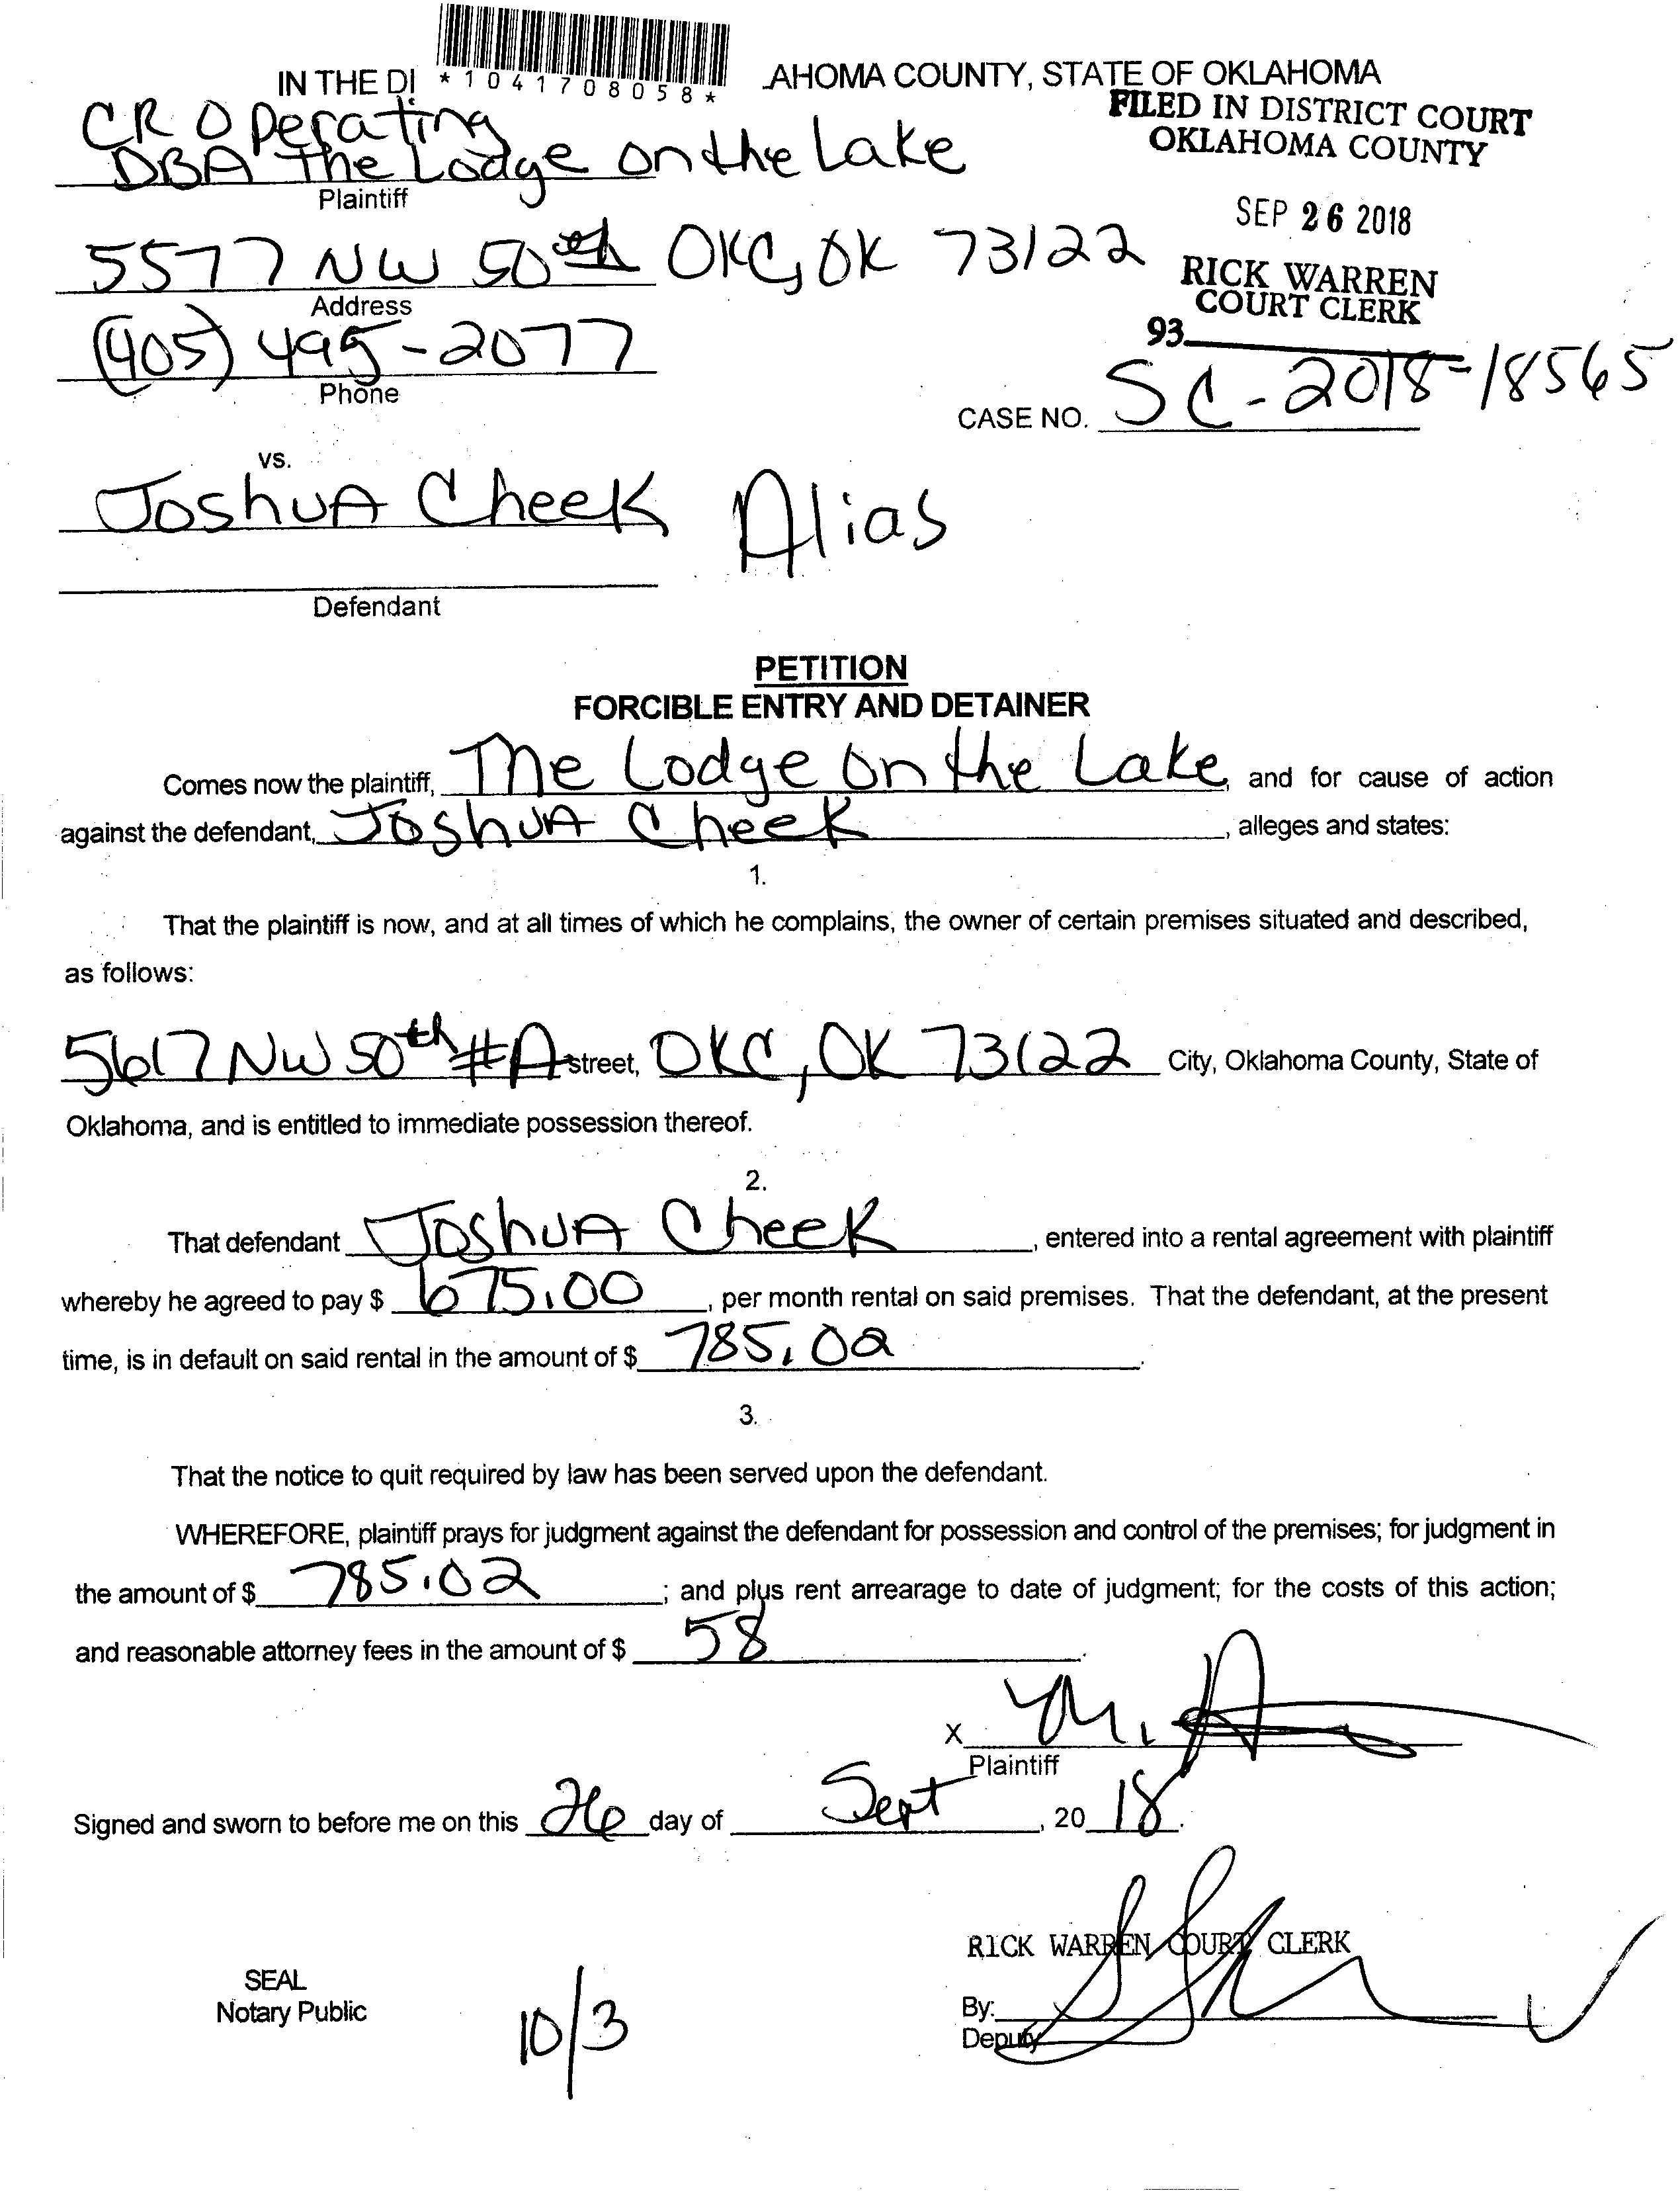 IN THE DI *1041708058* AHOMA COUNTY, STATE OF OKLAHOMA
FILED IN DISTRICT COURT
OKLAHOMA COUNTY
CR Operating
DBA The Lodge on the Lake
Plaintiff
SEP 26 2018
5577 NW 50th OKC, OK 73122
Address
RICK WARREN
COURT CLERK
93
(405) 495-2077
Phone
CASE NO. SC-2018-18565
vs.
Joshua Cheek Alias
Defendant
PETITION
FORCIBLE ENTRY AND DETAINER
Comes now the plaintiff, The Lodge on the Lake, and for cause of action
against the defendant, Joshua Cheek, alleges and states:
1.
That the plaintiff is now, and at all times of which he complains, the owner of certain premises situated and described,
as follows:
5617 NW 50th #A street, OKC, OK 73122 City, Oklahoma County, State of
Oklahoma, and is entitled to immediate possession thereof.
2.
That defendant Joshua Cheek, entered into a rental agreement with plaintiff
whereby he agreed to pay $ 675.00, per month rental on said premises. That the defendant, at the present
time, is in default on said rental in the amount of $ 785.02.
3.
That the notice to quit required by law has been served upon the defendant.
WHEREFORE, plaintiff prays for judgment against the defendant for possession and control of the premises; for judgment in
the amount of $ 785.02; and plus rent arrearage to date of judgment; for the costs of this action;
and reasonable attorney fees in the amount of $ 58.
X
Plaintiff
Signed and sworn to before me on this 26 day of Sept, 20 18.
RICK WARREN COURT CLERK
SEAL
Notary Public
10/3
By:
Deputy